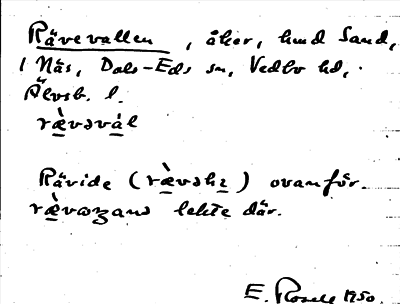 Rävevallen, åker, hmd Sand,
1 Näs, Dals-Eds sn, Vedbo hd,
Älvsb. l.
ræ̀vəvál
Rävide (ræ̀vəhı) ovanför.
lekte där.
E. Rosell 1950.